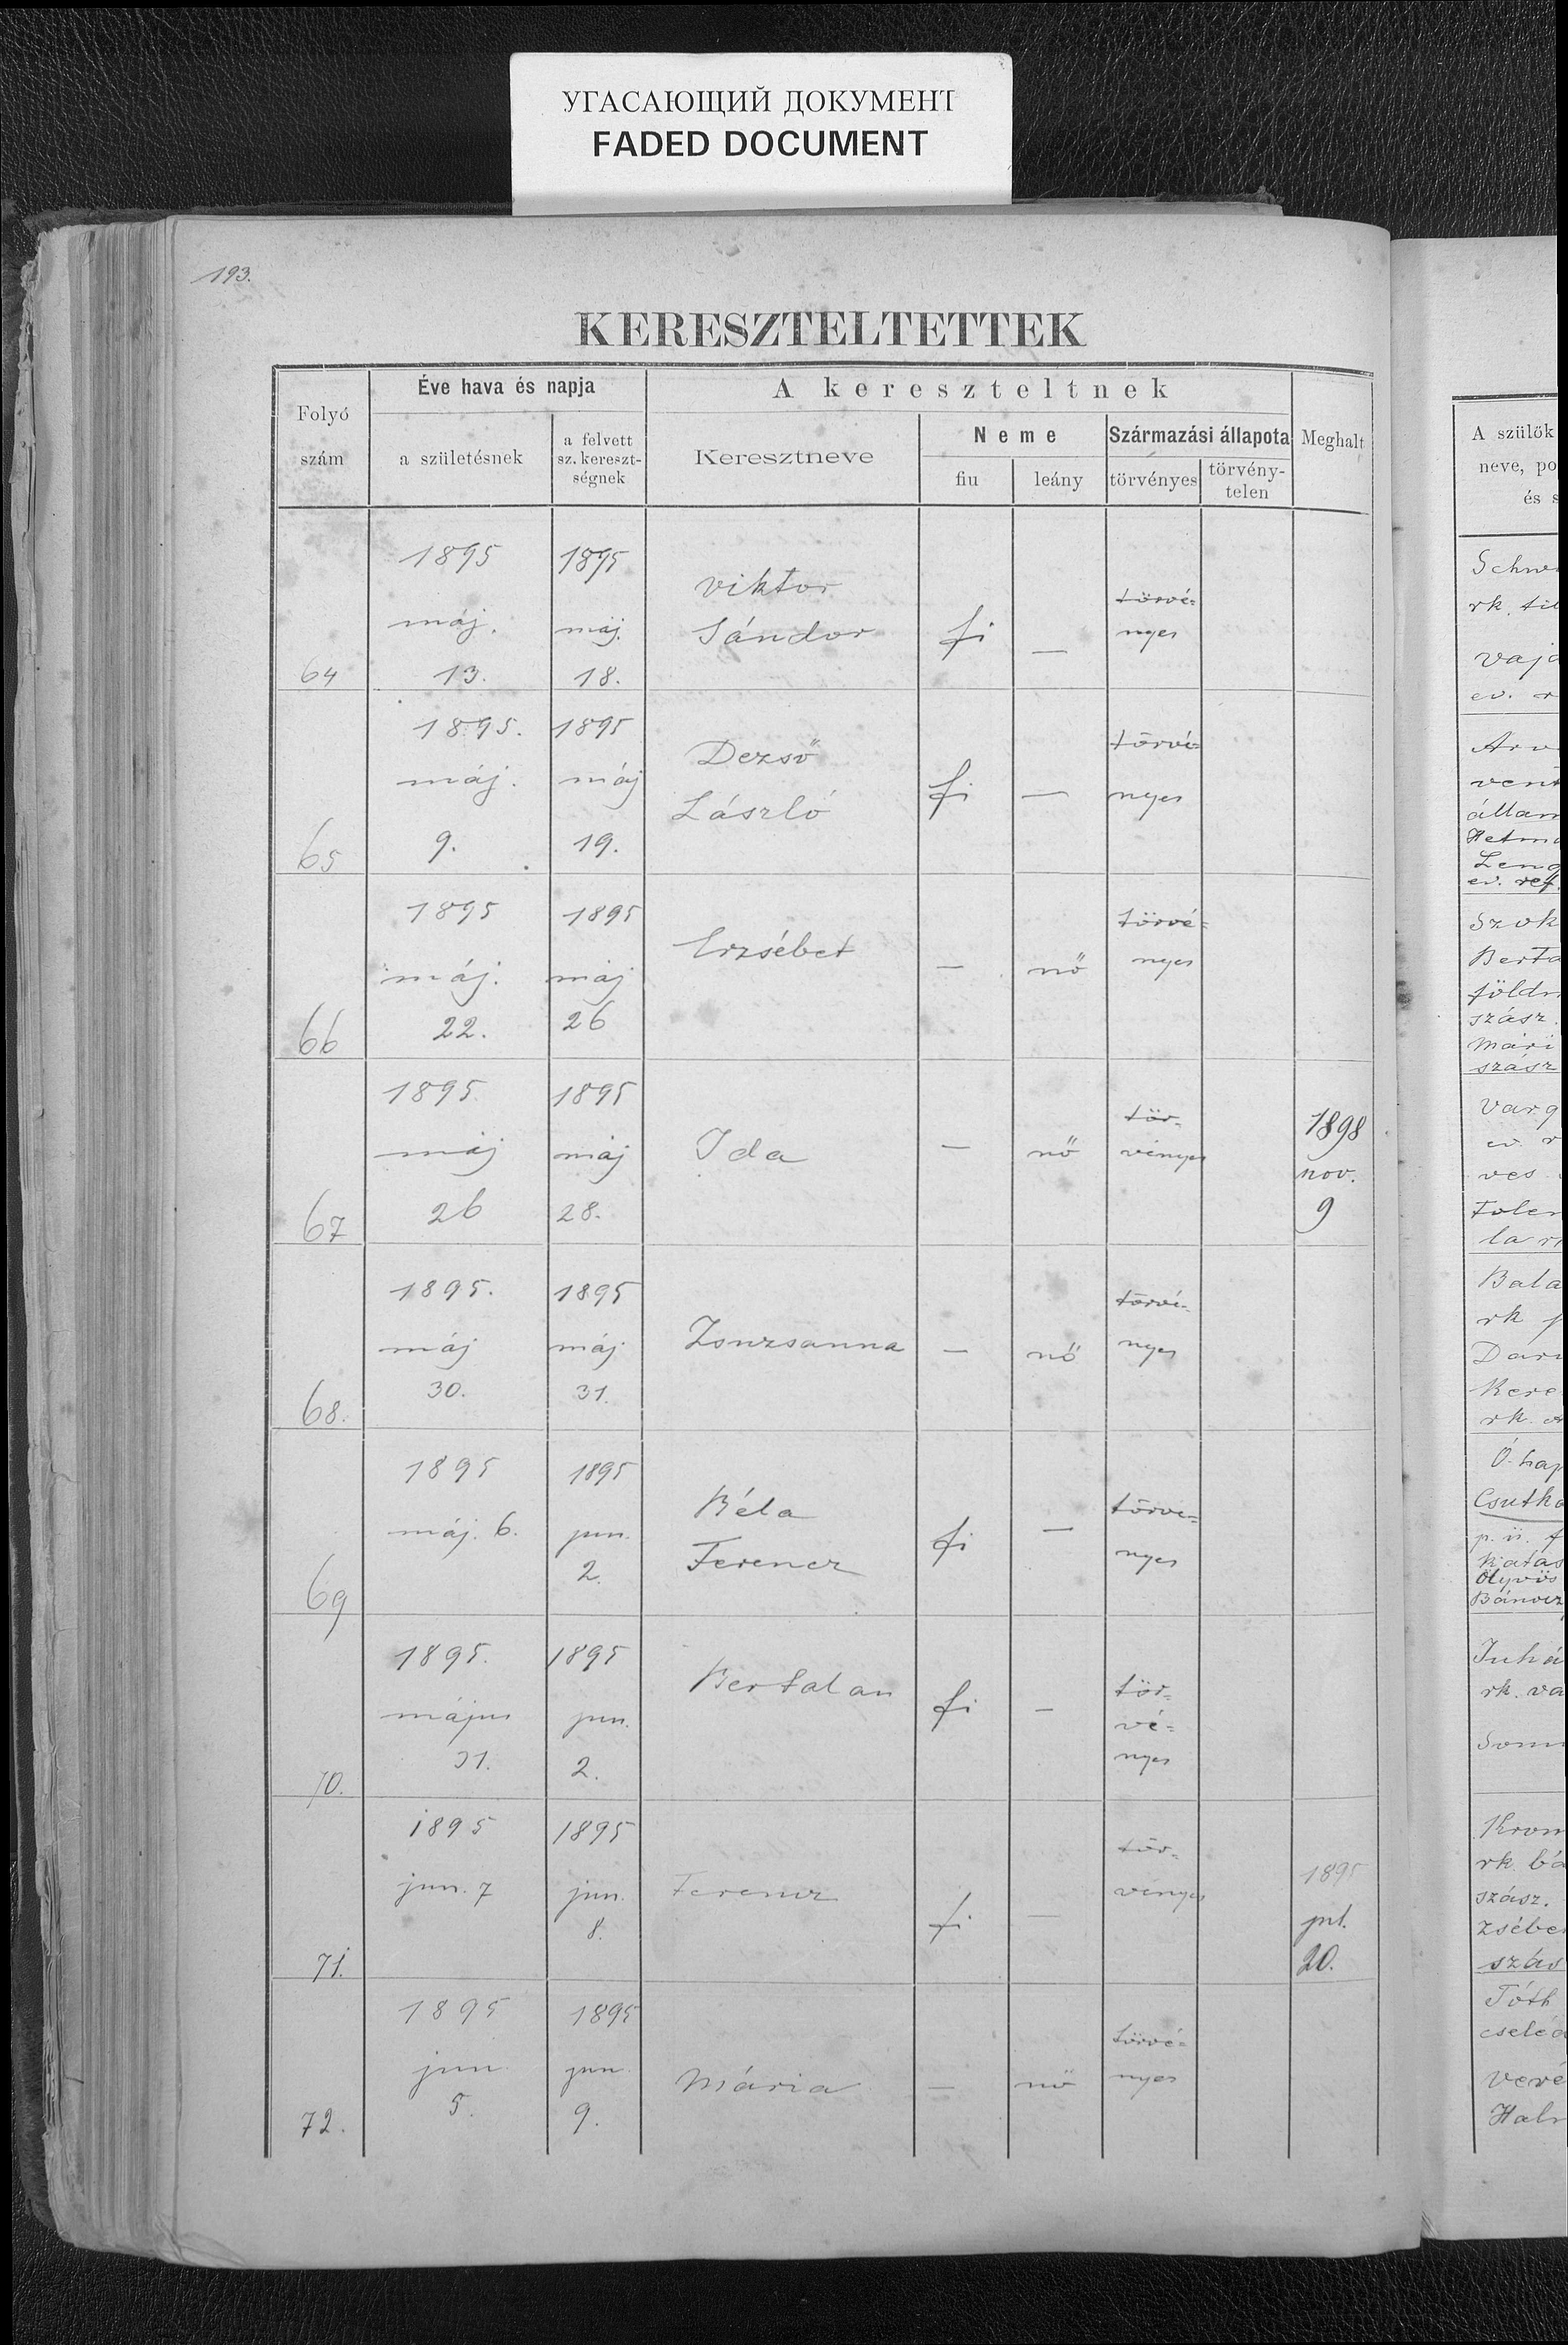 УГАСАЮЩИЙ ДОКУМЕНТ
FADED DOCUMENT
193.
KERESZTELTETTEK
Folyó szám
Éve hava és napja
a születésnek
a felvett sz. kereszt-ségnek
A kereszteltnek
Keresztneve
Neme
fiu
leány
Származási állapota
törvényes
törvény-telen
Meghalt
64
1895 máj. 13.
1895 máj. 18.
Viktor
Sándor
fi
—
törvé=
nyes
65
1895. máj. 9.
1895 máj 19.
Dezső
László
fi
—
törvé=
nyes
66
1895 máj. 22.
1895 máj 26
Erzsébet
—
nő
törvé=
nyes
67
1895. máj 26
1895 máj 28.
Ida
—
nő
tör-
vényes
1898
nov.
9
68.
1895. máj 30.
1895 máj. 31.
Zsuzsanna
—
nő
törvé-
nyes
69
1895 máj. 6.
1895 jun. 2.
Béla
Ferencz
fi
—
törvé=
nyes
70.
1895. május 31.
1895 jun. 2.
Bertalan
fi
—
tör=
vé=
nyes
71.
1895 jun. 7
1895 jun. 8.
Ferencz
fi
—
tör=
vényes
1895
jul.
20.
72.
1895 jun 5.
1895 jun 9.
Mária
—
nő
törvé=
nyes
A szülők
neve, po
és s
Schwe
rk.
vaja
ev. r
vent
állam
Hetma
Leng
ev. ref.
Szok
Berta
földm
szász
Mári
szász
Varg
ev. r
ves
la
Bala
rk p
Dar
Kere
rk.
Ó-hap
Csutka
p. ü. f
Katas
Ölyvös
Juhá
rk. va
Som
Krom
rk. bá
szász.
zsébe
szás
Tóth
cseléd
vere
Hal